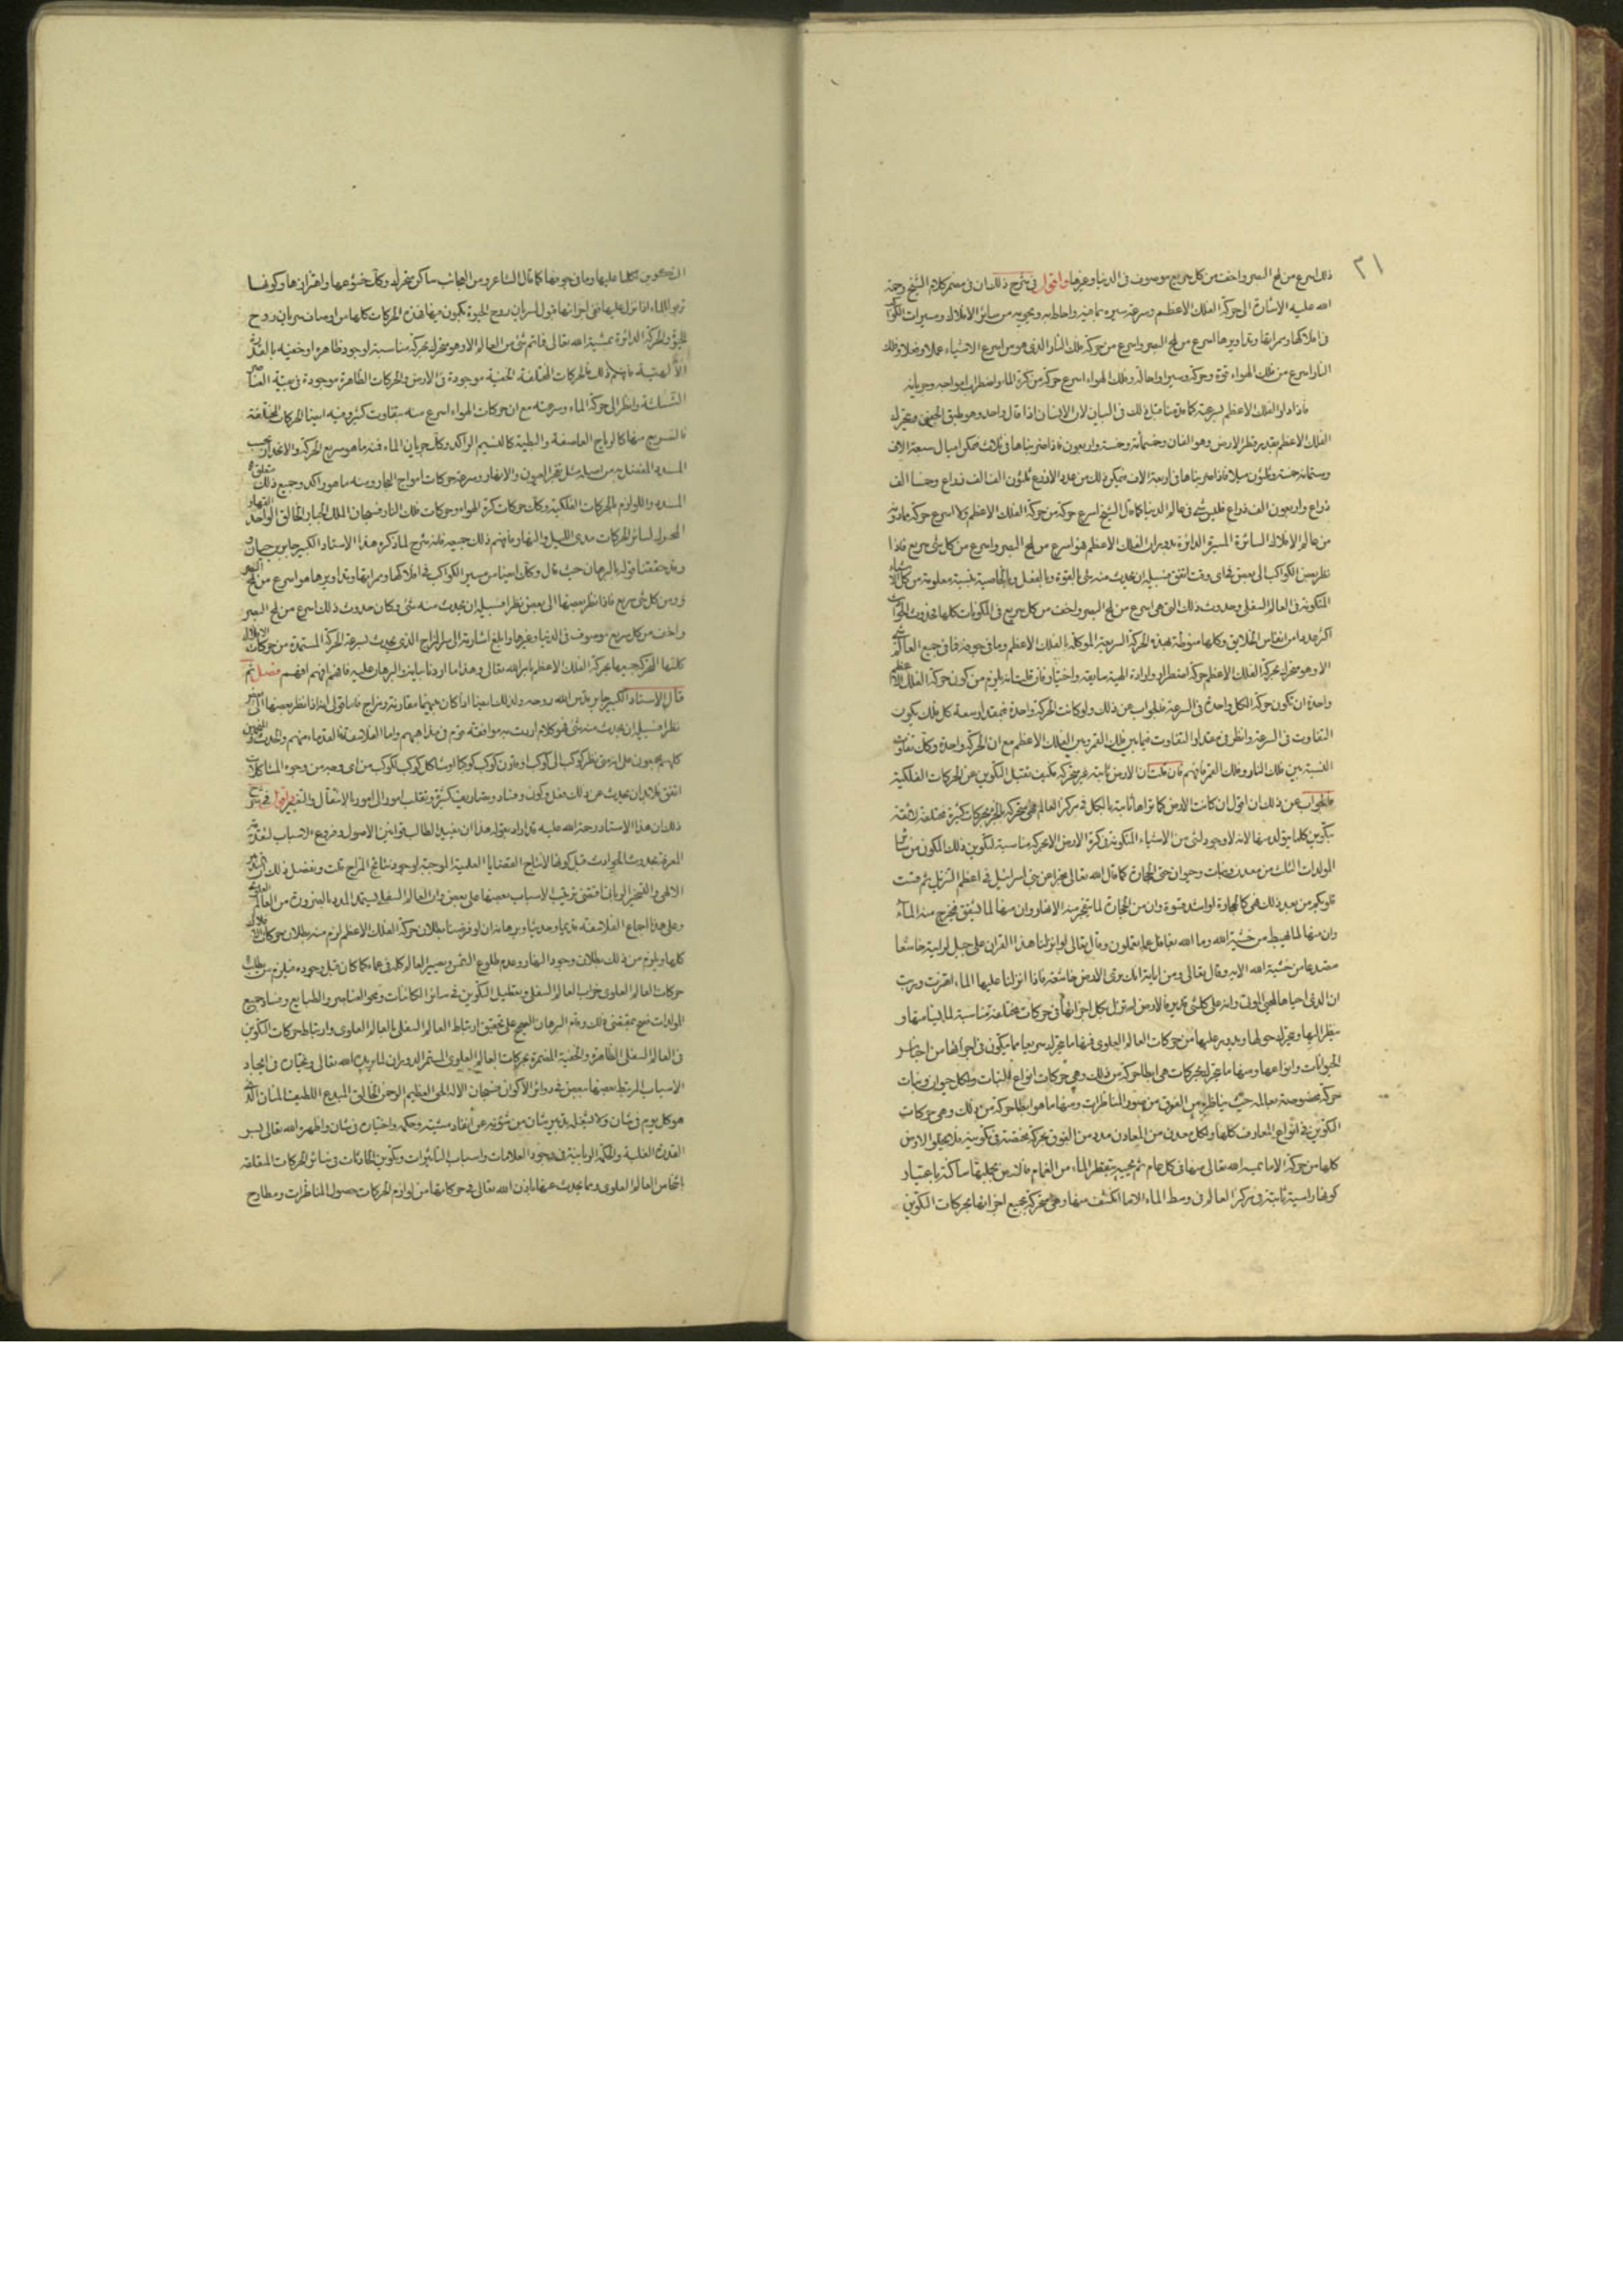 ٣١
ذلك اسرع من لمح البصر واخف من كل سريع موصوف فى الدنيا وغيرها واقول فى شرح ذلك ان فى مضمر كلام الشيخ رحمة
الله عليه الاشارة الى حركة الفلك الاعظم وسرعة سيره بما فيه واحاط به ويحويه من سائر الافلاك ومسيرات الكواكب
فى افلاكها ومراتبها وتداويرها اسرع من لمح البصر واسرع من حركة فلك النار الذى هو من اسرع الاشياء عملا وفعلا وفلك
النار اسرع من فلك الهواء قوة وحركة وسيرا واحالة وفلك الهواء اسرع حركة من كرة الماء واضطراب امواجه وجريانه
فاذا دار الفلك الاعظم بسرعته كما قدمنا قبل ذلك فى البيان لان الانسان اذا قال واحد وهو مطبق الحنفى ويتحرك
الفلك الاعظم بقدر قطر الارض وهو الفان وخمسمائة وخمسة واربعون فاذا ضربناها فى ثلاث فيمكن اميال سبعة الاف
وستمائة خمسة وثلثون ميلا فاذا ضربناها فى اربعة الاف فيكن ذلك من عدد الاذرع ثلثون الف الف ذراع وخمسا الف
ذراع واربعون الف ذراع فليس شئ فى عالم الدنيا كما قال الشيخ اسرع حركة من حركة الفلك الاعظم ولا اسرع حركة مما دونه
من عالم الافلاك السائرة المسيرة الدائرة بدوران الفلك الاعظم فهو اسرع من لمح البصر واسرع من كل شئ سريع فاذا
نظر بعض الكواكب الى بعض فى اى وقت اتفق فسبيله ان يحدث منه شئ بالقوة وبالفعل وبالخاصية بنسبة معلومة من كل الاشياء
المتكونة فى العالم السفلى وحدوث ذلك التى هى اسرع من لمح البصر واخف من كل سريع فى المكونات كلها بحدوث الحوادث
اكثر عددا من انفاس الخلايق وكلها منوطة بهذه الحركة السريعة الموكلة بالفلك الاعظم وما فى جوفه فما فى جميع العالم شئ
الا وهو متحرك بحركة الفلك الاعظم حركة اضطرار وارادة الهية سابقة واختيار فان قلت انه يلزم من كون حركة الفلك الاعظم
واحدة ان تكون حركة الكل واحدة فى السرعة فالجواب عن ذلك ولو كانت الحركة واحدة فبقدر اوسعة كل فلك يكون
التفاوت فى السرعة وانظر فى مقدار التفاوت فيما بين فلك القمر وبين الفلك الاعظم مع ان الحركة واحدة وكان تفاوت
النسبة بين فلك النار وفلك القمر فافهم فان قلت ان الارض ثابتة غير متحركة فكيف تقبل التكوين عن الحركات الفلكية
فالجواب عن ذلك ان اقول ان كانت الارض كما تراها ثابتة بالكل فى مركز العالم فهى متحركة بالجزء بحركات كثيرة مختلفة لائقة
بتكوين كلما يتولد منها لانه لا وجود لشئ من الاشياء المتكونة فى كرة الارض الا بحركة مناسبة لتكوين ذلك الكون من سائر
المولدات الثلث من معدن ونبات وحيوان حتى الحجارة كما قال الله تعالى مخبرا عن بنى اسرائيل فى اعظم التنزيل ثم قست
قلوبكم من بعد ذلك فهى كالحجارة او اشد قسوة وان من الحجارة لما يتفجر منه الانهار وان منها لما يشقق فيخرج منه الماء
وان منها لما يهبط من خشية الله وما الله بغافل عما يعملون وقال تعالى لو انزلنا هذا القرآن على جبل لرايته خاشعا
متصدعا من خشية الله الاية وقال تعالى ومن اياته انك ترى الارض خاشعة فاذا انزلنا عليها الماء اهتزت وربت
ان الذى احياها لمحيى الموتى وانه على كل شئ قدير فالارض لم تزل بكل اجزائها فى حركات مختلفة مناسبة لما فيها منها و
ينظر اليها ويتحرك حولها ويدور عليها من حركات العالم العلوى فمنها ما يتحرك سريعا مما يكون فى اجزائها من اجناس
الحيوانات وانواعها ومنها ما يتحرك بحركات هى ابطا حركة من ذلك وهى حركات انواع النبات ولكل حيوان ونبات
حركة مخصوصة بعالمه حتى يناظره من الفوق من صور المناظرات ومنها ما هو ابطا حركة من ذلك وهى حركات
التكوين فى انواع المعادن كلها ولكل معدن من المعادن مدد من الفوق بحركة مختصة فى تكوينه فلا يخلو الارض
كلها من حركة الا ما يميته الله تعالى منها فى كل عام ثم يحييه بتقطر الماء من الغمام فالارض بجملتها ساكنة باعتبار
كونها راسية ثابتة فى مركز العالم فى وسط الماء الا ما انكشف منها وهى متحركة بجميع اجزائها بحركات التكوين
التكوين لكلما عليها وما فى جوفها كما قال الشاعر ومن العجائب ساكن متحرك وكان خشوعها واهتزازها وكونها
تربو بالماء اذا نزل عليها ففى اجزائها قبول لسريان روح الحيوة فيكون فيها فهذه الحركات كلها من اوصاف سريان روح
الحيوة والحركة الدائرة بمشية الله تعالى فما ثم شئ من العالم الا وهو متحرك بحركة مناسبة لوجوده ظاهرة او خفية بالقدرة
الالهية فافهم ذلك فالحركات المختلفة الخفية موجودة فى الارض والحركات الظاهرة موجودة فى بقية العناصر
الثلثة وانظر الى حركة الماء وسرعته مع ان حركات الهواء اسرع منه بتفاوت كثير وفيه ايضا الحركات المختلفة
فالسريع منها كالرياح العاصفة والبطية كالنسيم الراكد وكان جريان الماء فمنه ما هو سريع الحركة والانحدار بحسب
المدد المتصل به من اصله مثل تفجر العيون والانهار وسرعة حركات امواج البحار ومنه ما هو راكد وجميع ذلك متعلق
المدد واللوازم بالحركات الفلكية وكان حركات كرة الهواء وحركات فلك النار فسبحان الملك الجبار الخالق الواحد القهار
المحرك لسائر الحركات مدى الليل والنهار فافهم ذلك جميعه فانه شرح لما ذكره هذا الاستاد الكبير جابر بن حيان و
وقد حققنا قوله بالبرهان حيث قال وكان ايضا من مسير الكواكب فى افلاكها ومراتبها وتداويرها هو اسرع من لمح البصر
ومن كل شئ سريع فاذا نظر بعضها الى بعض نظرا فسبيله ان يحدث منه شئ وكان حدوث ذلك اسرع من لمح البصر
واخف من كل سريع موصوف فى الدنيا وغيرها وابلغ اشارته الى المزاج الذى يحدث بسرعة الحركة المستمدة من حركات الافلاك
كلها المتحركة جميعها بحركة الفلك الاعظم بامر الله تعالى وهذا ما اردنا بيانه والبرهان عليه فافهم افهم افهم فصل ثم
قال الاستاد الكبير جابر قدس الله روحه ولذلك ايضا اذا كان بينهما مقارنة ومزاج فاما قولى انه اذا نظر بعضها الى بعض
نظرا فسبيله ان يحدث منه شئ فهو كلام اردت به موافقة قوم فى مذاهبهم واما الفلاسفة فالقدماء منهم والحدث والمنجمين
كلهم مجمعون على انه متى نظر كوكب الى كوكب او قارن كوكب كوكبا او شاكل كوكب لكوكب من اى وجه من وجوه المشاكلات
اتفق فلا بد ان يحدث عن ذلك فعل وكون وفساد وتصاريف كثيرة وتقلب امور الى امور بالانتقال والتغير واقول فى شرح
ذلك ان هذا الاستاد رحمة الله عليه قد اراد بقوله هذا ان يفيد الطالب قوانين الاصول وفروع الاسباب لتقدمة
المعرفة بحدوث الحوادث قبل كونها لانتاج القضايا العلمية الموجبة لوجود نتائج المزاج قلت وتفضل ذلك ان القدير
الالهى والتسخير الربانى اقتضى ترتيب الاسباب بعضها على بعض وان العالم السفلى يستمد المدد بالضرورة من العالم العلوى
وعلى هذا اجماع الفلاسفة قديما وحديثا وبرهانه ان لو فرضنا بطلان حركة الفلك الاعظم لزم منه بطلان حركات الافلاك
كلها ويلزم من ذلك بطلان وجود النهار وعدم طلوع الشمس ويصير العالم كله فى عماء كما كان قبل وجوده فيلزم من بطلان
حركات العالم العلوى خراب العالم السفلى وتعطيل التكوين فى سائر الكائنات ومحو العناصر والطبايع وفساد جميع
المولدات فصح بمقتضى ذلك وقام البرهان الصحيح على تحقيق ارتباط العالم السفلى بالعالم العلوى وارتباط حركات التكوين
فى العالم السفلى الظاهرة والخفية المضمرة بحركات العالم العلوى المستمر الدوران لما يريده الله تعالى ويختاره فى ايجاد
الاسباب المرتبط بعضها ببعض فى دوائر الاكوان فسبحان الاله الحى العظيم الرحمن الخالق المبدع اللطيف المنان الذى
هو كل يوم فى شان ولا يشغله تدبير شان من شؤنه عن انفاذ مشيته وحكمه واختياره فى شان واظهر الله تعالى بسر
القدرة الغلبة والحكمة الربانية فى وجود العلامات واسباب التاثيرات وتكوين الحادثات فى سائر الحركات المتعلقة
باشخاص العالم العلوى وما يحدث عنها باذن الله تعالى فى حركاتها من لوازم الحركات حصول المناظرات ومطارح